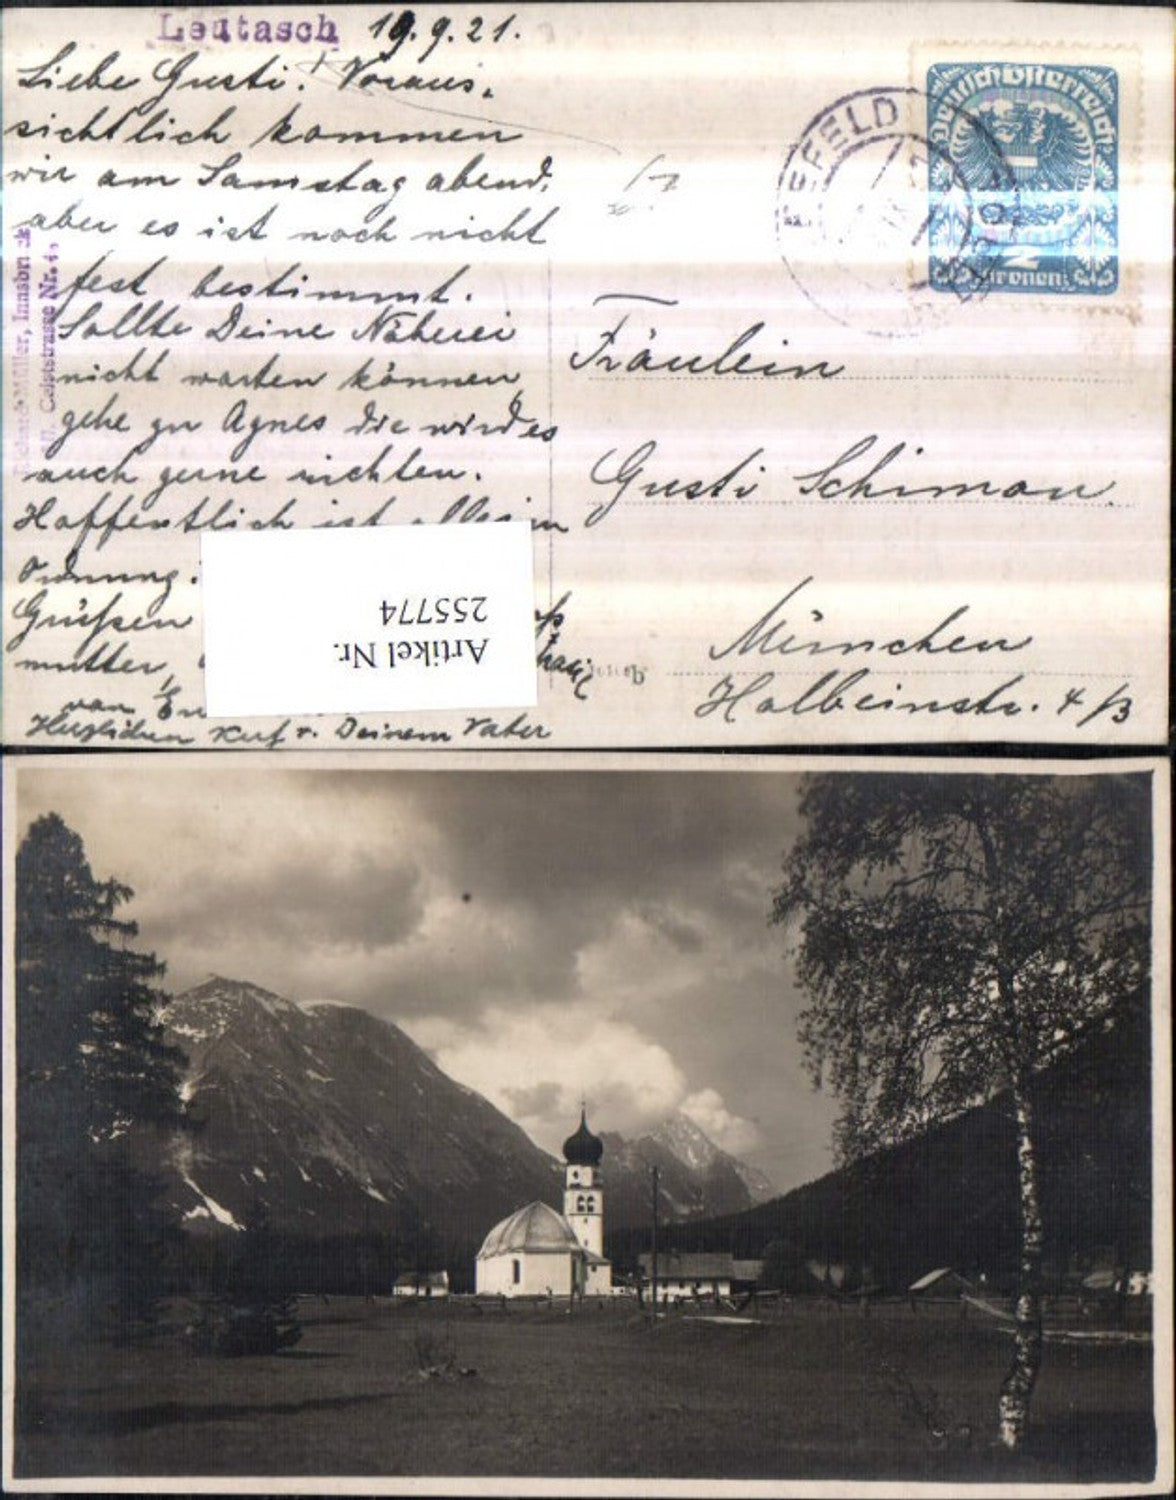 Leutasch 19.9.21.
Liebe Gusti! Voraus-
sichtlich kommen
wir am Samstag abend,
aber es ist noch nicht
fest bestimmt.
Sollte Deine Näherei
nicht warten können,
gehe zu Agnes die wird es
auch gerne richten.
Hoffentlich ist alles in
Ordnung.
Grüßen
mutter,
von
Herzlichen v. Deinem Vater
Müller, Innsbruck
Deutschösterreich
2
Kronen
SEEFELD
Fräulein
Gusti Schimon.
München
Holbeinstr. 4/3
Artikel Nr.
255774